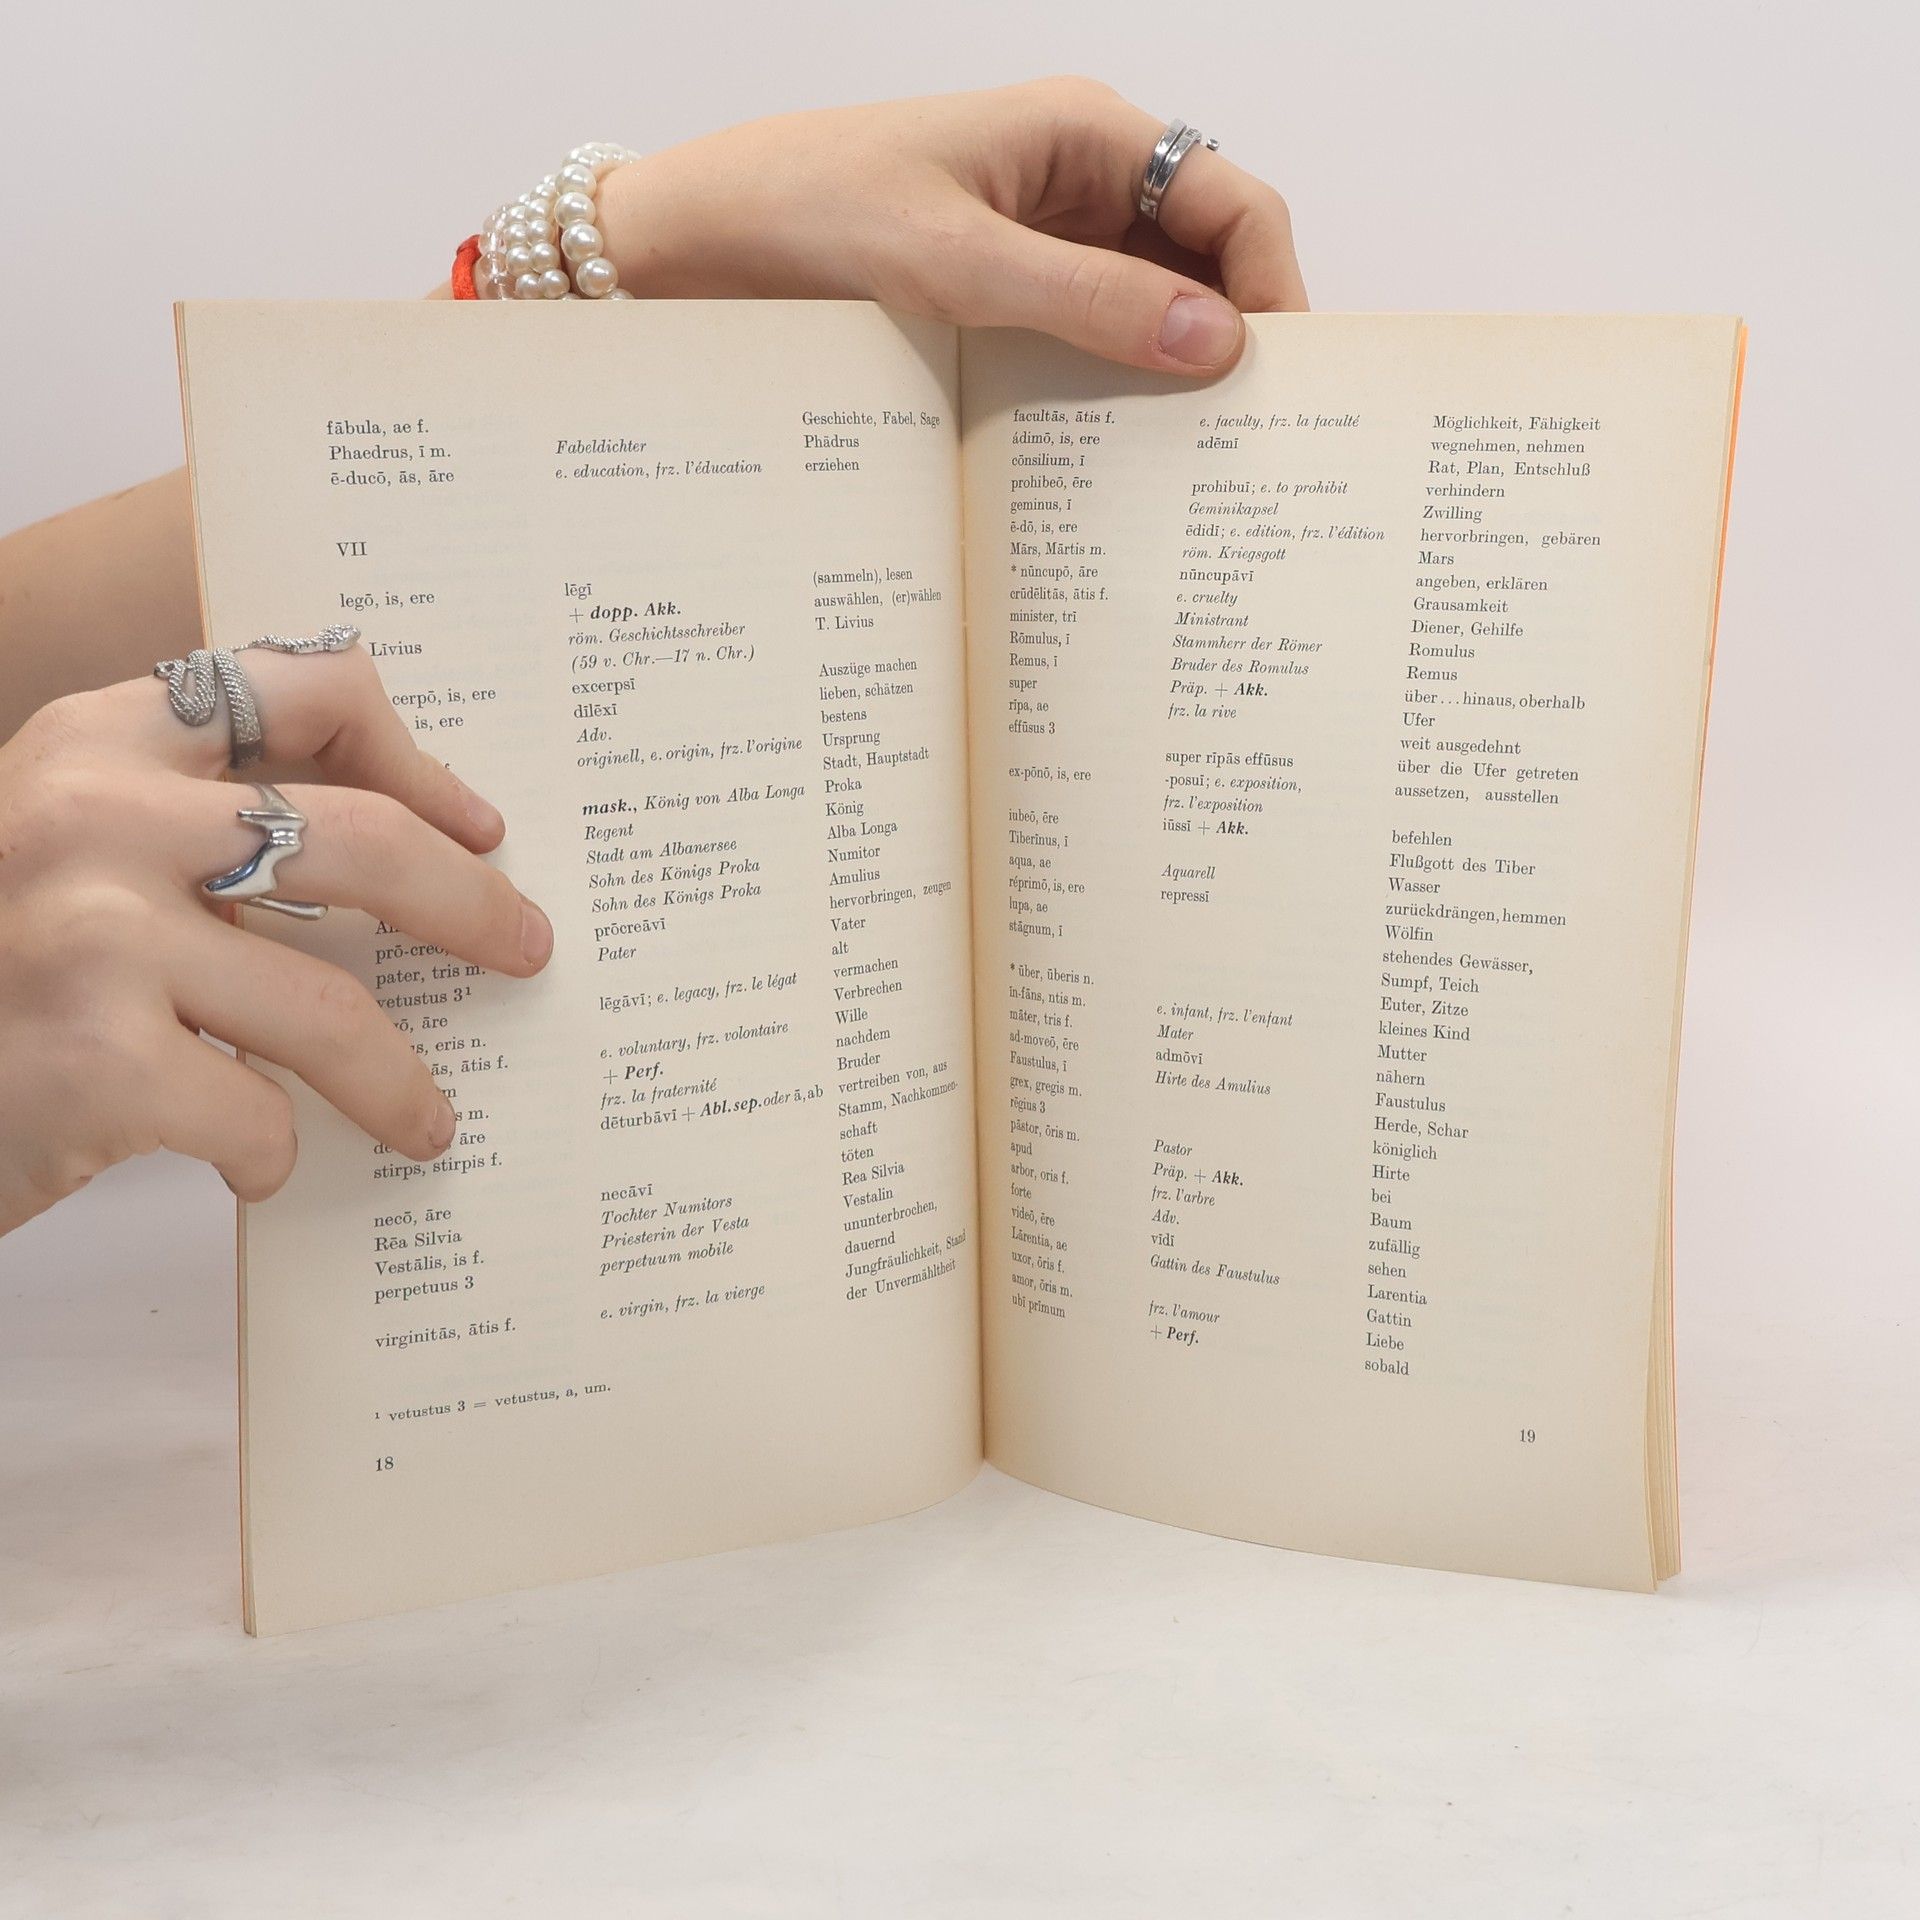 fābula, ae f. Geschichte, Fabel, Sage
Phaedrus, ī m. Fabeldichter Phädrus
ē-ducō, ās, āre e. education, frz. l'éducation erziehen
VII
legō, is, ere lēgī (sammeln), lesen
+ dopp. Akk. auswählen, (er)wählen
Līvius röm. Geschichtsschreiber T. Livius
(59 v. Chr.—17 n. Chr.)
cerpō, is, ere excerpsī Auszüge machen
is, ere dīlēxī lieben, schätzen
Adv. bestens
originell, e. origin, frz. l'origine Ursprung
Stadt, Hauptstadt
mask., König von Alba Longa Proka
Regent König
Stadt am Albanersee Alba Longa
Sohn des Königs Proka Numitor
Sohn des Königs Proka Amulius
prō-creō, prōcreāvī hervorbringen, zeugen
pater, tris m. Pater Vater
vetustus 3¹ alt
āre lēgāvī; e. legacy, frz. le légat vermachen
eris n. Verbrechen
ātis f. e. voluntary, frz. volontaire Wille
+ Perf. nachdem
m. frz. la fraternité Bruder
āre dēturbāvī + Abl. sep. oder ā, ab vertreiben von, aus
stirps, stirpis f. Stamm, Nachkommen-
schaft
necō, āre necāvī töten
Rēa Silvia Tochter Numitors Rea Silvia
Vestālis, is f. Priesterin der Vesta Vestalin
perpetuus 3 perpetuum mobile ununterbrochen,
dauernd
virginitās, ātis f. e. virgin, frz. la vierge Jungfräulichkeit, Stand
der Unvermähltheit
¹ vetustus 3 = vetustus, a, um.
18
facultās, ātis f. e. faculty, frz. la faculté Möglichkeit, Fähigkeit
ádimō, is, ere adēmī wegnehmen, nehmen
cōnsilium, ī Rat, Plan, Entschluß
prohibeō, ēre prohibuī; e. to prohibit verhindern
geminus, ī Geminikapsel Zwilling
ē-dō, is, ere ēdidī; e. edition, frz. l'édition hervorbringen, gebären
Mārs, Mārtis m. röm. Kriegsgott Mars
* nūncupō, āre nūncupāvī angeben, erklären
crūdēlitās, ātis f. e. cruelty Grausamkeit
minister, trī Ministrant Diener, Gehilfe
Rōmulus, ī Stammherr der Römer Romulus
Remus, ī Bruder des Romulus Remus
super Präp. + Akk. über ... hinaus, oberhalb
rīpa, ae frz. la rive Ufer
effūsus 3 weit ausgedehnt
super rīpās effūsus über die Ufer getreten
ex-pōnō, is, ere -posuī; e. exposition, aussetzen, ausstellen
frz. l'exposition
iubeō, ēre iūssī + Akk. befehlen
Tiberīnus, ī Flußgott des Tiber
aqua, ae Aquarell Wasser
réprimō, is, ere repressī zurückdrängen, hemmen
lupa, ae Wölfin
stāgnum, ī stehendes Gewässer,
Sumpf, Teich
* über, überis n. Euter, Zitze
īn-fāns, ntis m. e. infant, frz. l'enfant kleines Kind
māter, tris f. Mater Mutter
ad-moveō, ēre admōvī nähern
Faustulus, ī Hirte des Amulius Faustulus
grex, gregis m. Herde, Schar
rēgius 3 königlich
pāstor, ōris m. Pastor Hirte
apud Präp. + Akk. bei
arbor, oris f. frz. l'arbre Baum
forte Adv. zufällig
videō, ēre vīdī sehen
Lārentia, ae Gattin des Faustulus Larentia
uxor, ōris f. Gattin
amor, ōris m. frz. l'amour Liebe
ubī prīmum + Perf. sobald
19